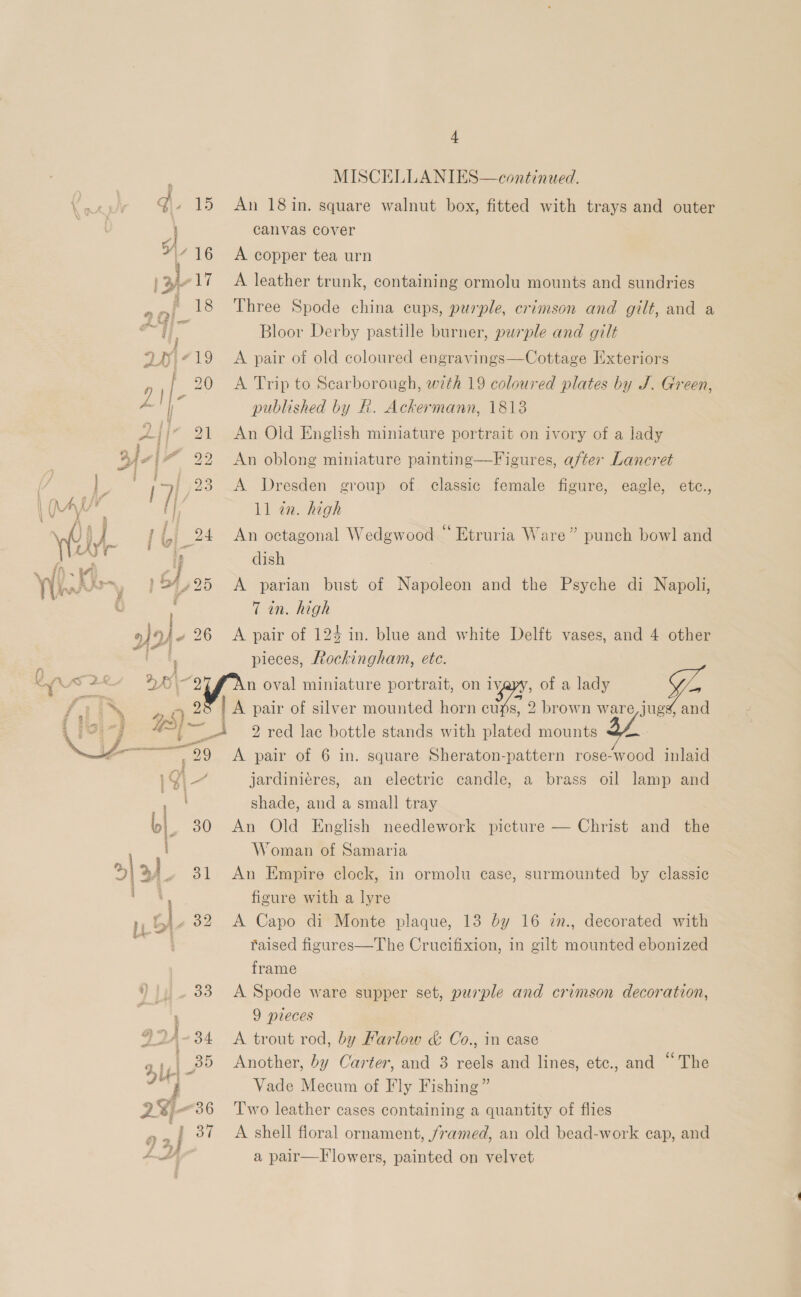 4
MISCELLANIES—continued.
15 An 18 in. square walnut box, fitted with trays and outer
canvas cover
16 A copper tea urn
17 A leather trunk, containing ormolu mounts and sundries
18 Three Spode china cups, purple, crimson and gilt, and a
Bloor Derby pastille burner, purple and gilt
19 A pair of old coloured engravings—Cottage Exteriors
20 A Trip to Scarborough, with 19 coloured plates by J. Green,
published by R. Ackermann, 1813
21 An Old English miniature portrait on ivory of a lady
22 An oblong miniature painting—Figures, after Lancret
23 A Dresden group of classic female figure, eagle, etc.,
11 in. high
24 An octagonal Wedgwood “Etruria Ware” punch bowl and
dish
25 A parian bust of Napoleon and the Psyche di Napoli,
7 in. high
26 A pair of 12½ in. blue and white Delft vases, and 4 other
pieces, Rockingham, etc.
27 An oval miniature portrait, on ivory, of a lady
28 A pair of silver mounted horn cups, 2 brown ware jugs, and
2 red lac bottle stands with plated mounts
29 A pair of 6 in. square Sheraton-pattern rose-wood inlaid
jardinières, an electric candle, a brass oil lamp and
shade, and a small tray
30 An Old English needlework picture — Christ and the
Woman of Samaria
31 An Empire clock, in ormolu case, surmounted by classic
figure with a lyre
32 A Capo di Monte plaque, 13 by 16 in., decorated with
raised figures—The Crucifixion, in gilt mounted ebonized
frame
33 A Spode ware supper set, purple and crimson decoration,
9 pieces
34 A trout rod, by Farlow & Co., in case
35 Another, by Carter, and 3 reels and lines, etc., and “The
Vade Mecum of Fly Fishing”
36 Two leather cases containing a quantity of flies
37 A shell floral ornament, framed, an old bead-work cap, and
a pair—Flowers, painted on velvet